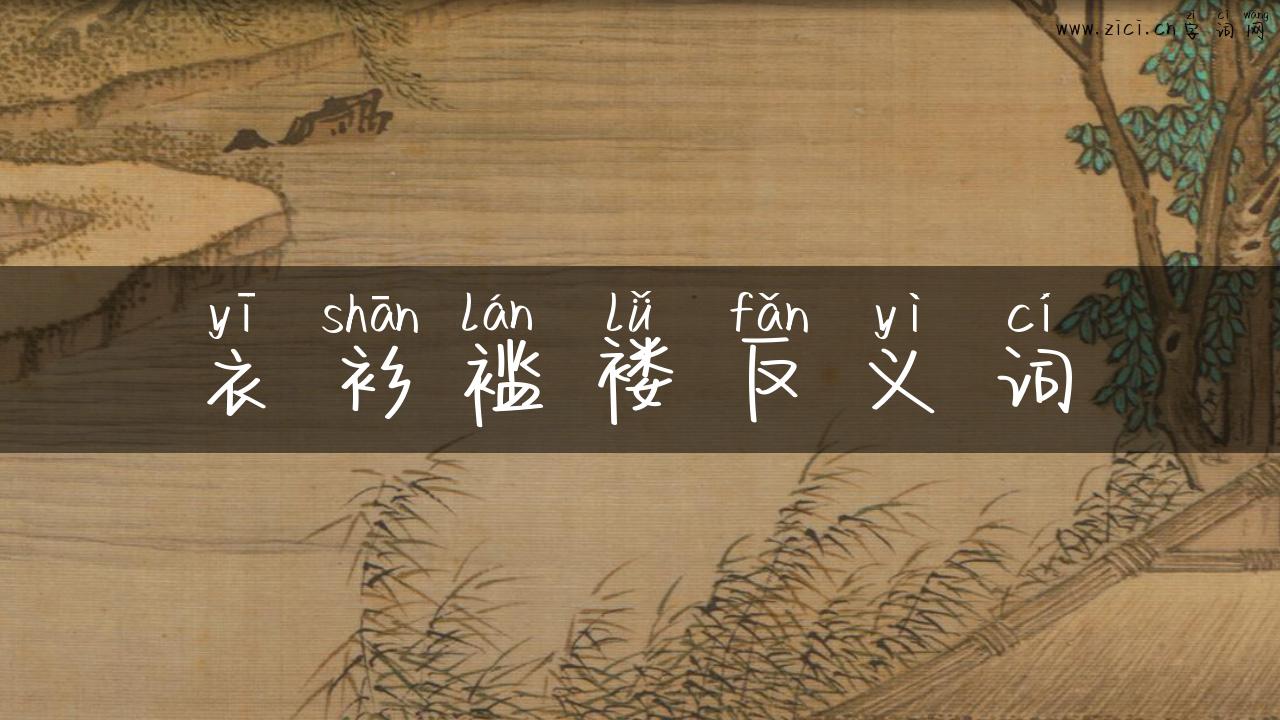 zì cí wǎng
www.zici.cn字词网
yī shān lán lǚ fǎn yì cí
衣衫褴褛反义词